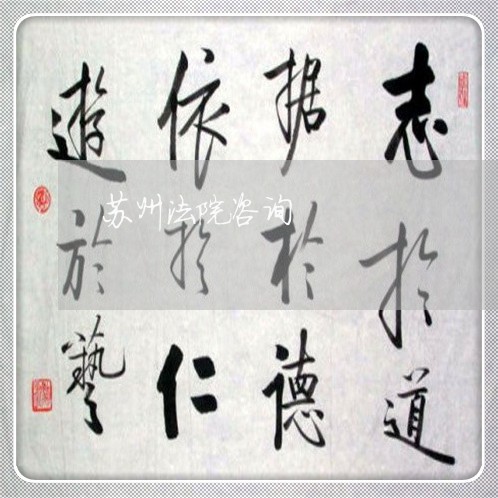 志於道
据於德
依於仁
遊於藝
苏州法院咨询